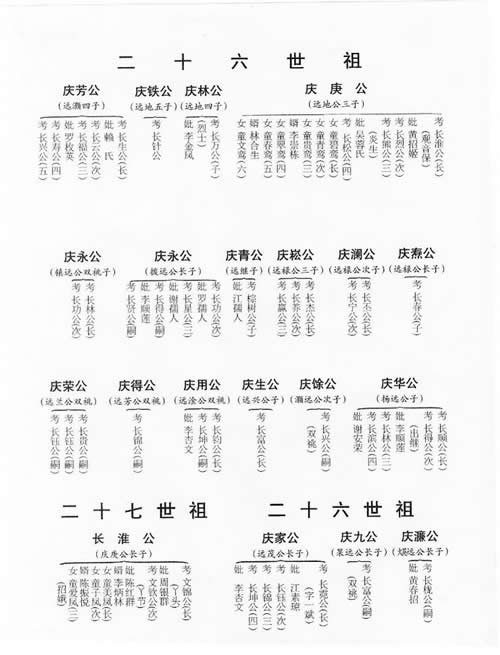 二十六世祖
庆庚公
(远地公三子)
考长淮公(长)
(观音保)
妣黄招姬
考长烈公(次)
考长熊公(三)
(炎生)
妣吴蓉氏
考长松公(四)
女童碧鸾(长)
女童青鸾(次)
女童贵鸾(三)
婿李崇栋
女童翠鸾(四)
女童春鸾(五)
婿林合生
女童文鸾(六)
庆林公
(远地四子)
考长万公(子)
(烈士)
妣李金凤
庆铁公
(远地五子)
考长针公
庆芳公
(远灏四子)
考长生公(长)
妣赖氏
考长云公(次)
考长福公(三)
妣罗枚英
考长寿公(四)
考长兴公(五)
庆焘公
(远禄公长子)
考长春公(子)
庆澜公
(远禄公次子)
考长丕公(长)
考长宁公(次)
庆崧公
(远禄公三子)
考长杰公(长)
考长养公(次)
考长赢公(三)
庆青公
(远继子)
考棕树公(子)
妣江孺人
庆永公
(拨远公长子)
考长功公(次)
妣罗孺人
考长星公(三)
妣谢孺人
考长得公(嗣)
妣李顺莲
考长贤公(嗣)
庆永公
(镇远公双桃子)
考长林公(长)
考长功公(次)
庆华公
(杨远公子)
考长顺公(长)
考长得公(次)
(出继)
妣李顺莲
考长林公(三)
考长滨公(四)
妣谢安荣
庆馀公
(灏远公次子)
考长兴公(嗣)
(双祧)
庆生公
(远兴公子)
考长富公(长)
庆用公
(远淦公双桃)
考长钧公(长)
考长坤公(嗣)
妣李杏文
庆得公
(远芳公双桃)
考长锦公(嗣)
庆荣公
(远兰公双桃)
考长贵公(嗣)
考长钰公(嗣)
考长钰公(嗣)
二十六世祖
庆濂公
考长栊公(嗣)
妣黄春招
庆九公
(杲远公长子)
考长富公(嗣)
(双祧)
庆家公
(远茂公长子)
考长霓公(长)
(字一斌)
妣江素琼
考长钰公(次)
考长锦公(三)
考长坤公(四)
妣李杏文
二十七世祖
长淮公
(庆庚公长子)
考文锦公(长)
(丫头)
妣周银群
考文钦公(次)
(丫节)
妣陈红群
女童美凤(长)
婿李炳林
女童子凤(次)
婿陈振悦
女童爱凤(三)
(招娥)